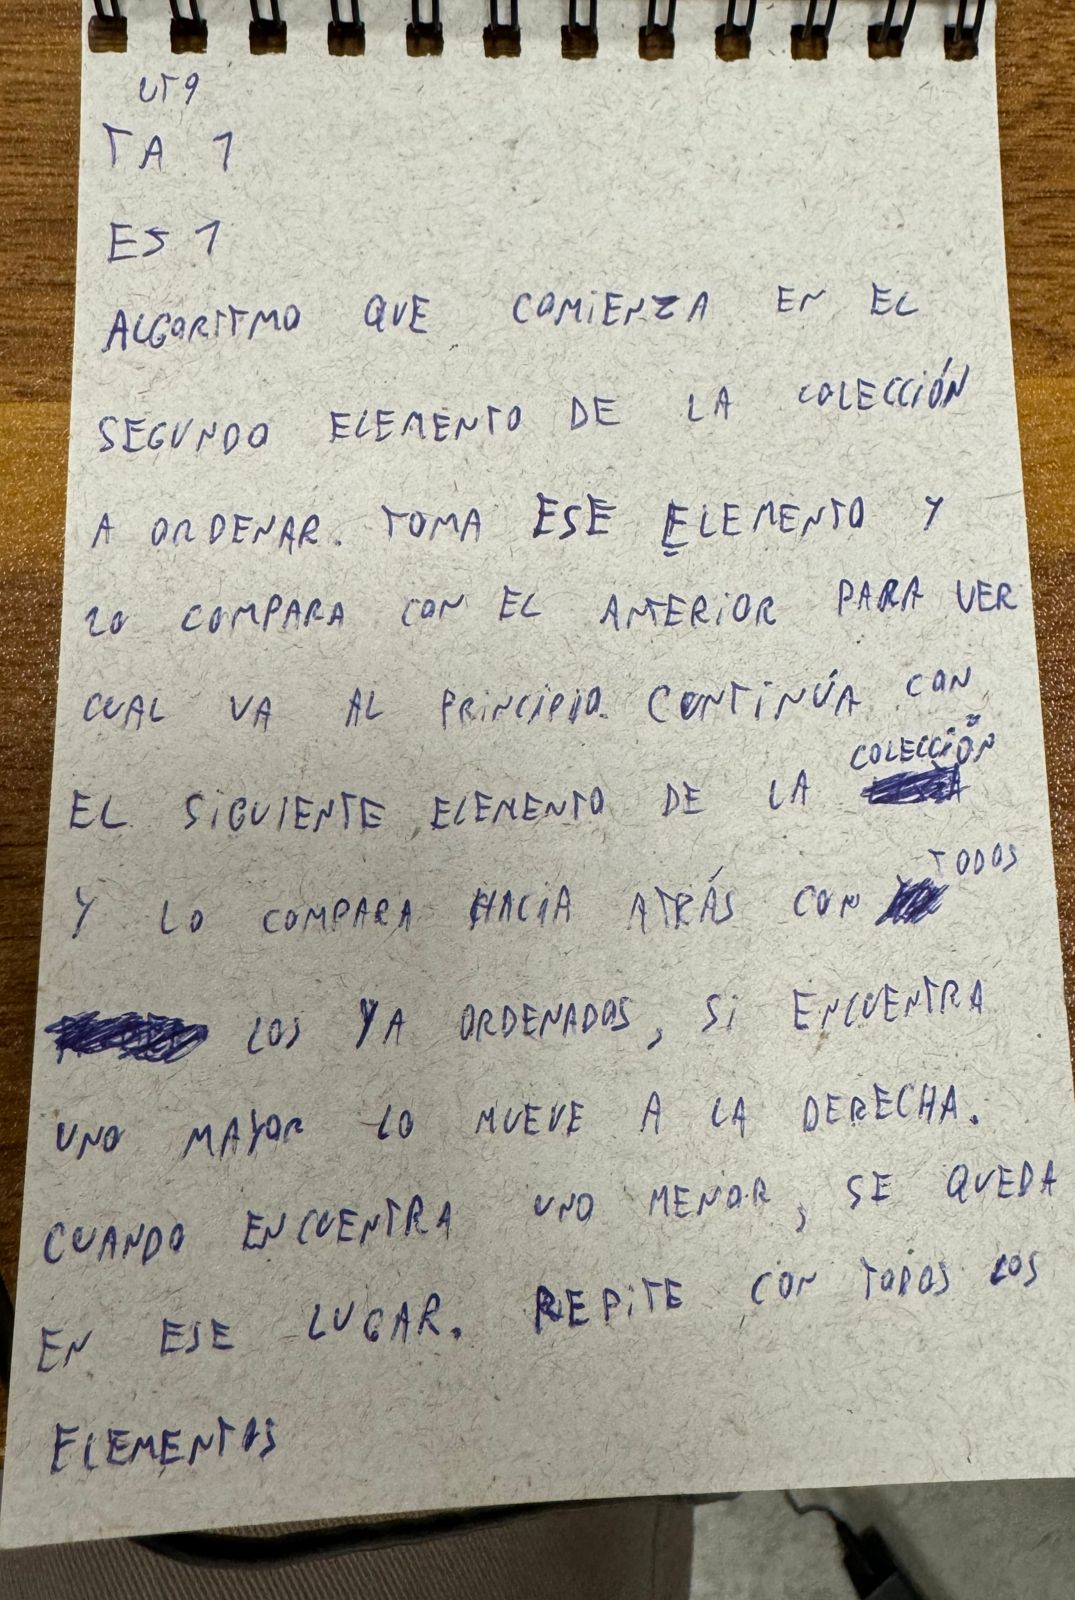 UT9
TA 1
ES 1
ALGORITMO QUE COMIENZA EN EL
SEGUNDO ELEMENTO DE LA COLECCIÓN
A ORDENAR. TOMA ESE ELEMENTO Y
LO COMPARA CON EL ANTERIOR PARA VER
CUAL VA AL PRINCIPIO. CONTINÚA CON
EL SIGUIENTE ELEMENTO DE LA COLECCIÓN
Y LO COMPARA HACIA ATRÁS CON TODOS
LOS YA ORDENADOS, SI ENCUENTRA
UNO MAYOR LO MUEVE A LA DERECHA.
CUANDO ENCUENTRA UNO MENOR, SE QUEDA
EN ESE LUGAR. REPITE CON TODOS LOS
ELEMENTOS